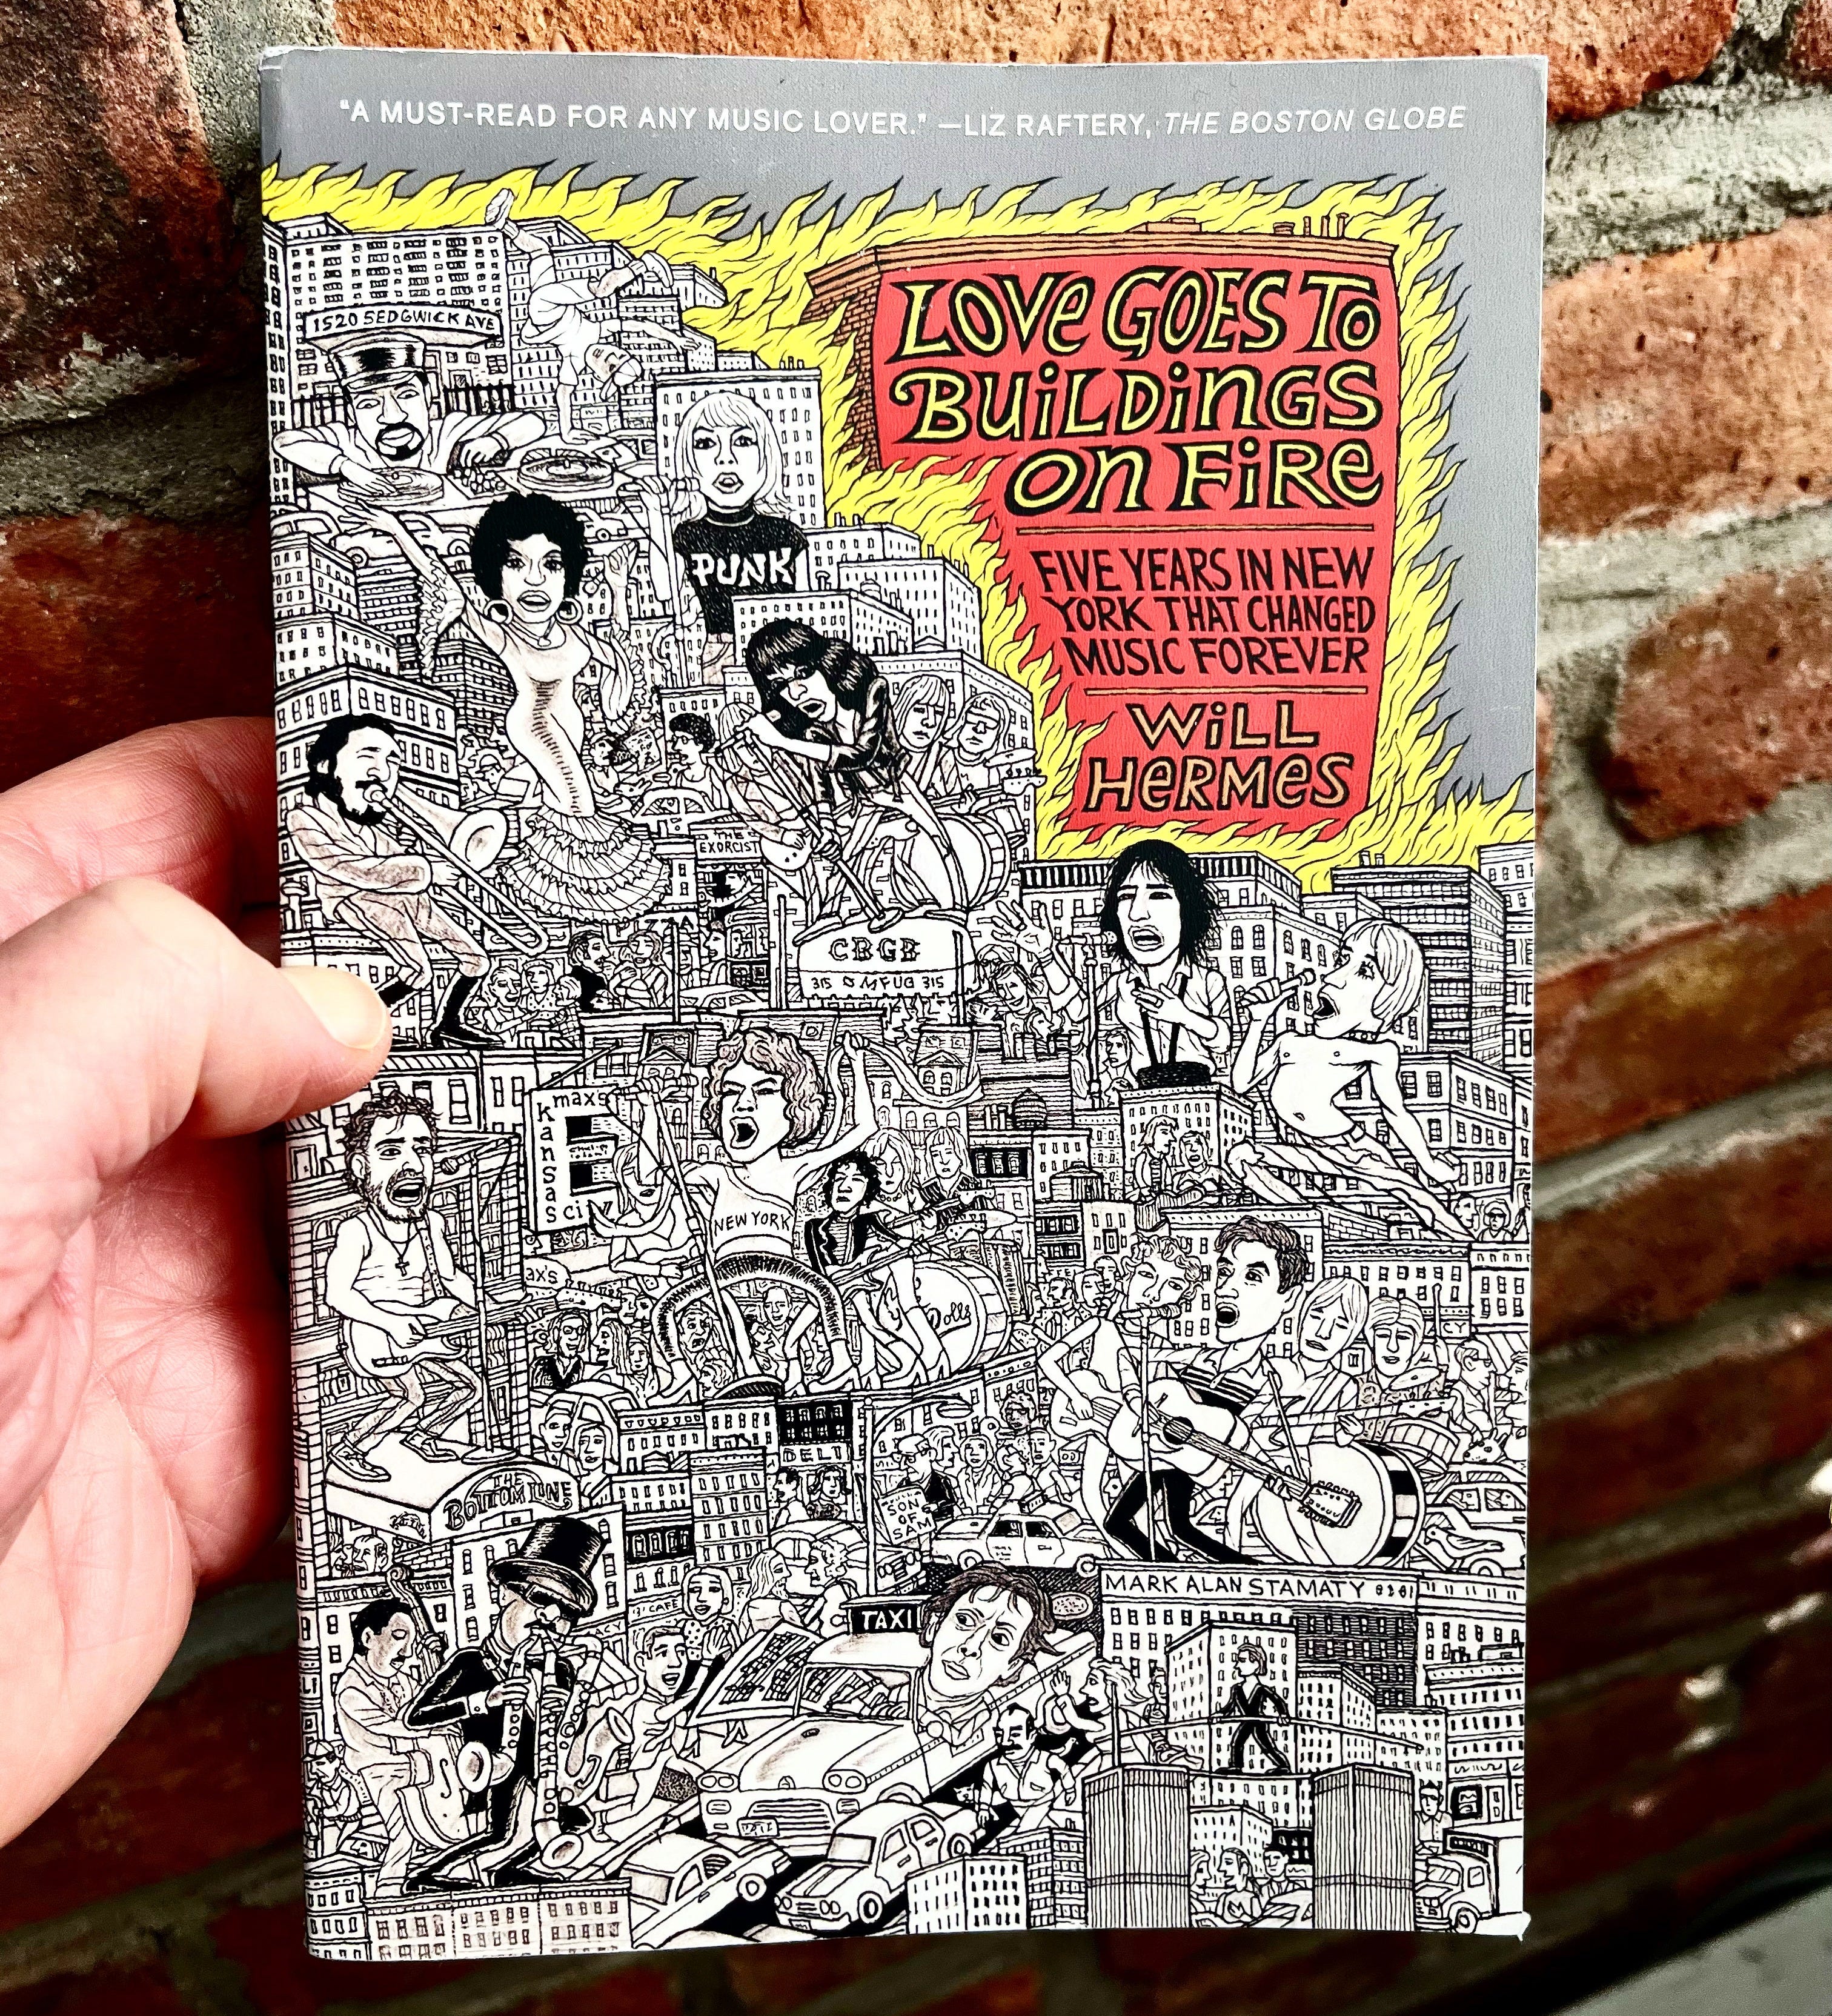 "A MUST-READ FOR ANY MUSIC LOVER." —LIZ RAFTERY, THE BOSTON GLOBE
LOVE GOES TO
BUILDINGS
ON FIRE
FIVE YEARS IN NEW
YORK THAT CHANGED
MUSIC FOREVER
WILL
HERMES
1520 SEDGWICK AVE
PUNK
THE
EXORCIST
PIZZA
CBGB
315 OMFUG 315
max's
kansas
city
NEW YORK
ax's
Dolls
DELI
THE
BOTTOM LINE
SON
OF
SAM
CAFE
TAXI
MARK ALAN STAMATY